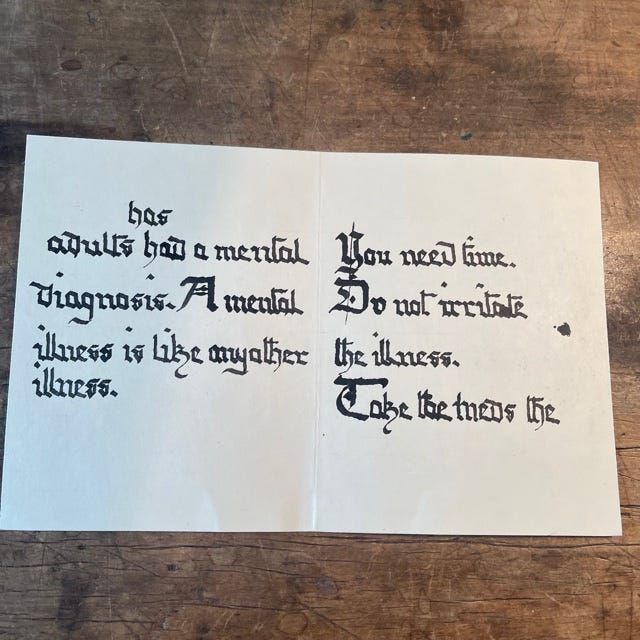 has
adults had a mental
diagnosis. A mental
illness is like any other
illness.
You need time.
Do not irritate
the illness.
Take the meds the